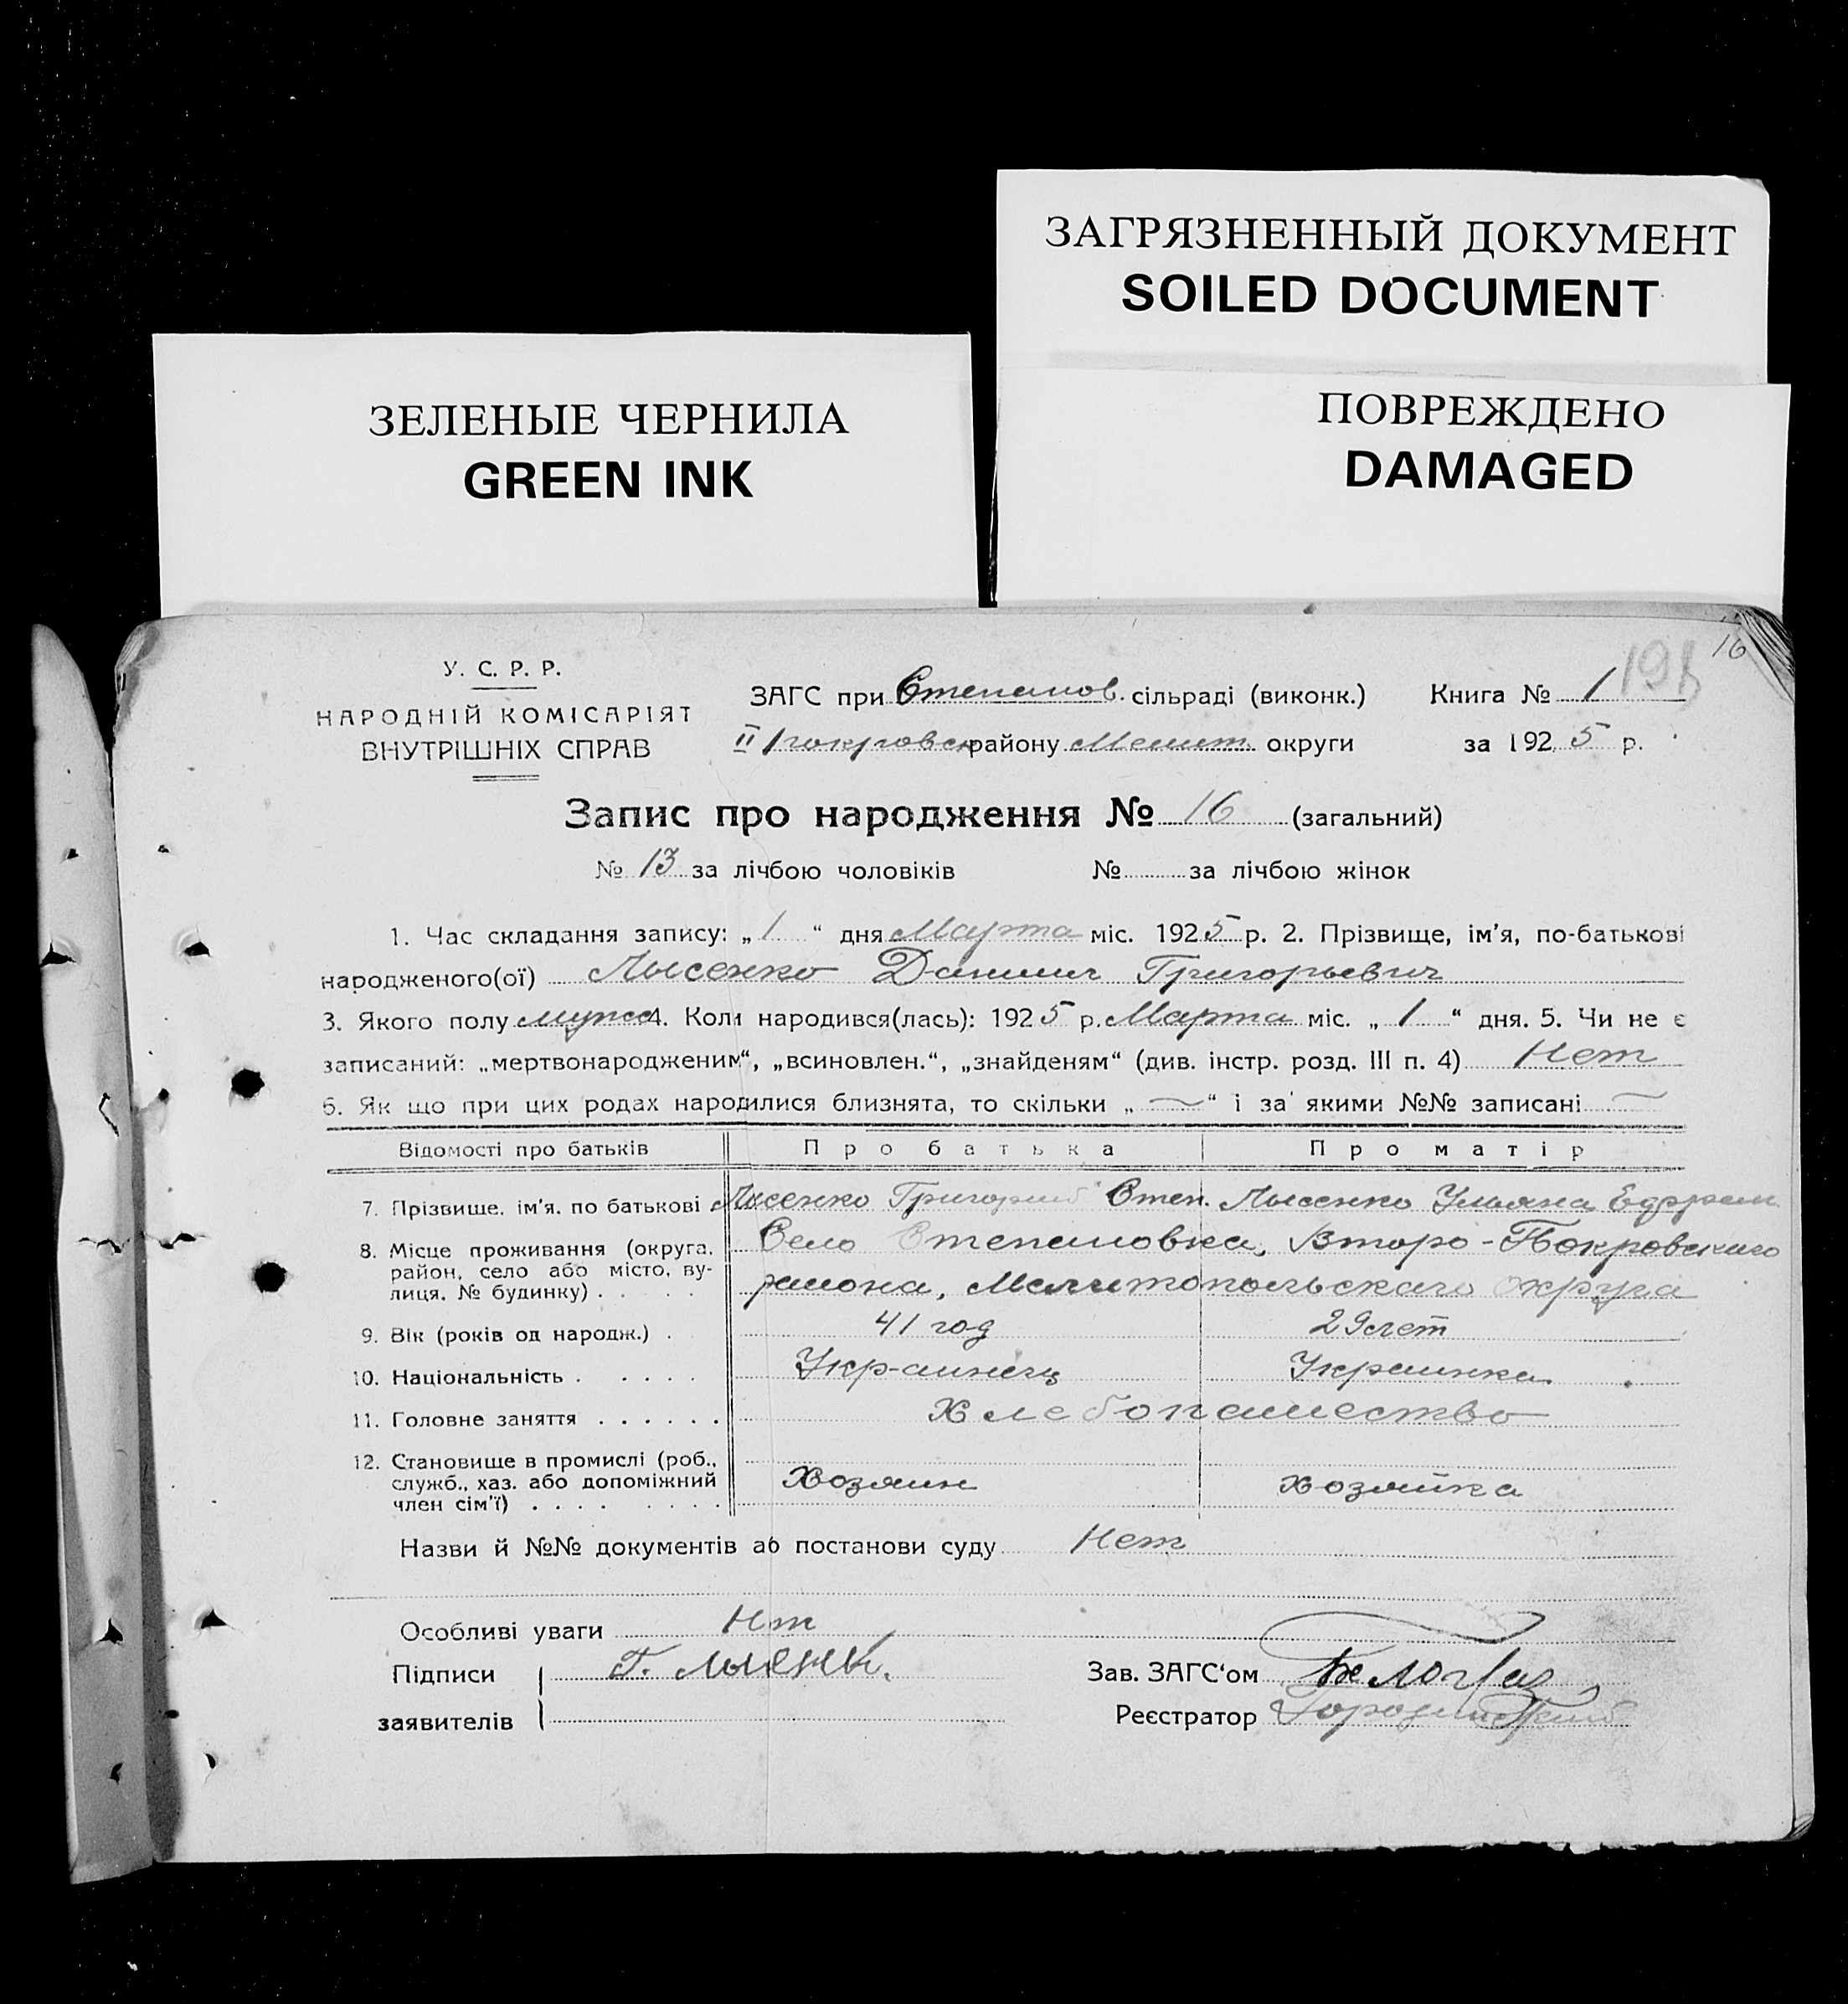 ЗАГРЯЗНЕННЫЙ ДОКУМЕНТ
SOILED DOCUMENT
ЗЕЛЕНЫЕ ЧЕРНИЛА
GREEN INK
ПОВРЕЖДЕНО
DAMAGED
16
У. С. Р. Р.
НАРОДНІЙ КОМІСАРІЯТ
ВНУТРІШНІХ СПРАВ
ЗАГС при Степанов. сільраді (виконк.) Книга № 1 198
II Покровск району Мелит. округи за 1925 р.
Запис про народження № 16 (загальний)
№ 13 за лічбою чоловіків № за лічбою жінок
1. Час складання запису: „1“ дня Марта міс. 1925 р. 2. Прізвище, ім'я, по-батькові
народженого(ої) Лысенко Даниил Григорьевич
3. Якого полу мужс 4. Коли народився(лась): 1925 р. Марта міс. „1“ дня. 5. Чи не є
записаний: „мертвонародженим“, „всиновлен.“, „знайденям“ (див. інстр. розд. III п. 4) Нет
6. Як що при цих родах народилися близнята, то скільки „—“ і за якими №№ записані —
Відомості про батьків Про батька Про матір
7. Прізвище, ім'я, по батькові Лысенко Григорий Степ. Лысенко Ульяна Ефрем
8. Місце проживання (округа, район, село або місто, вулиця, № будинку) Село Степановка, Второ-Покровскаго
района, Мелитопольскаго округа
9. Вік (років од народж.) 41 год 29 лет
10. Національність Украинец Украинка
11. Головне заняття Хлебопашество
12. Становище в промислі (роб., служб., хаз. або допоміжний член сім'ї) Хозяин хозяйка
Назви й №№ документів або постанови суду Нет
Особливі уваги Нет
Підписи Г. Лысенко
заявителів
Зав. ЗАГС'ом
Реєстратор